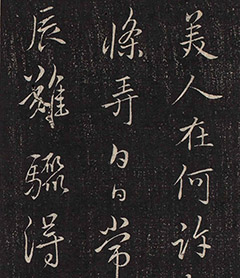 美人在何許
條弄白日常
辰難驟得